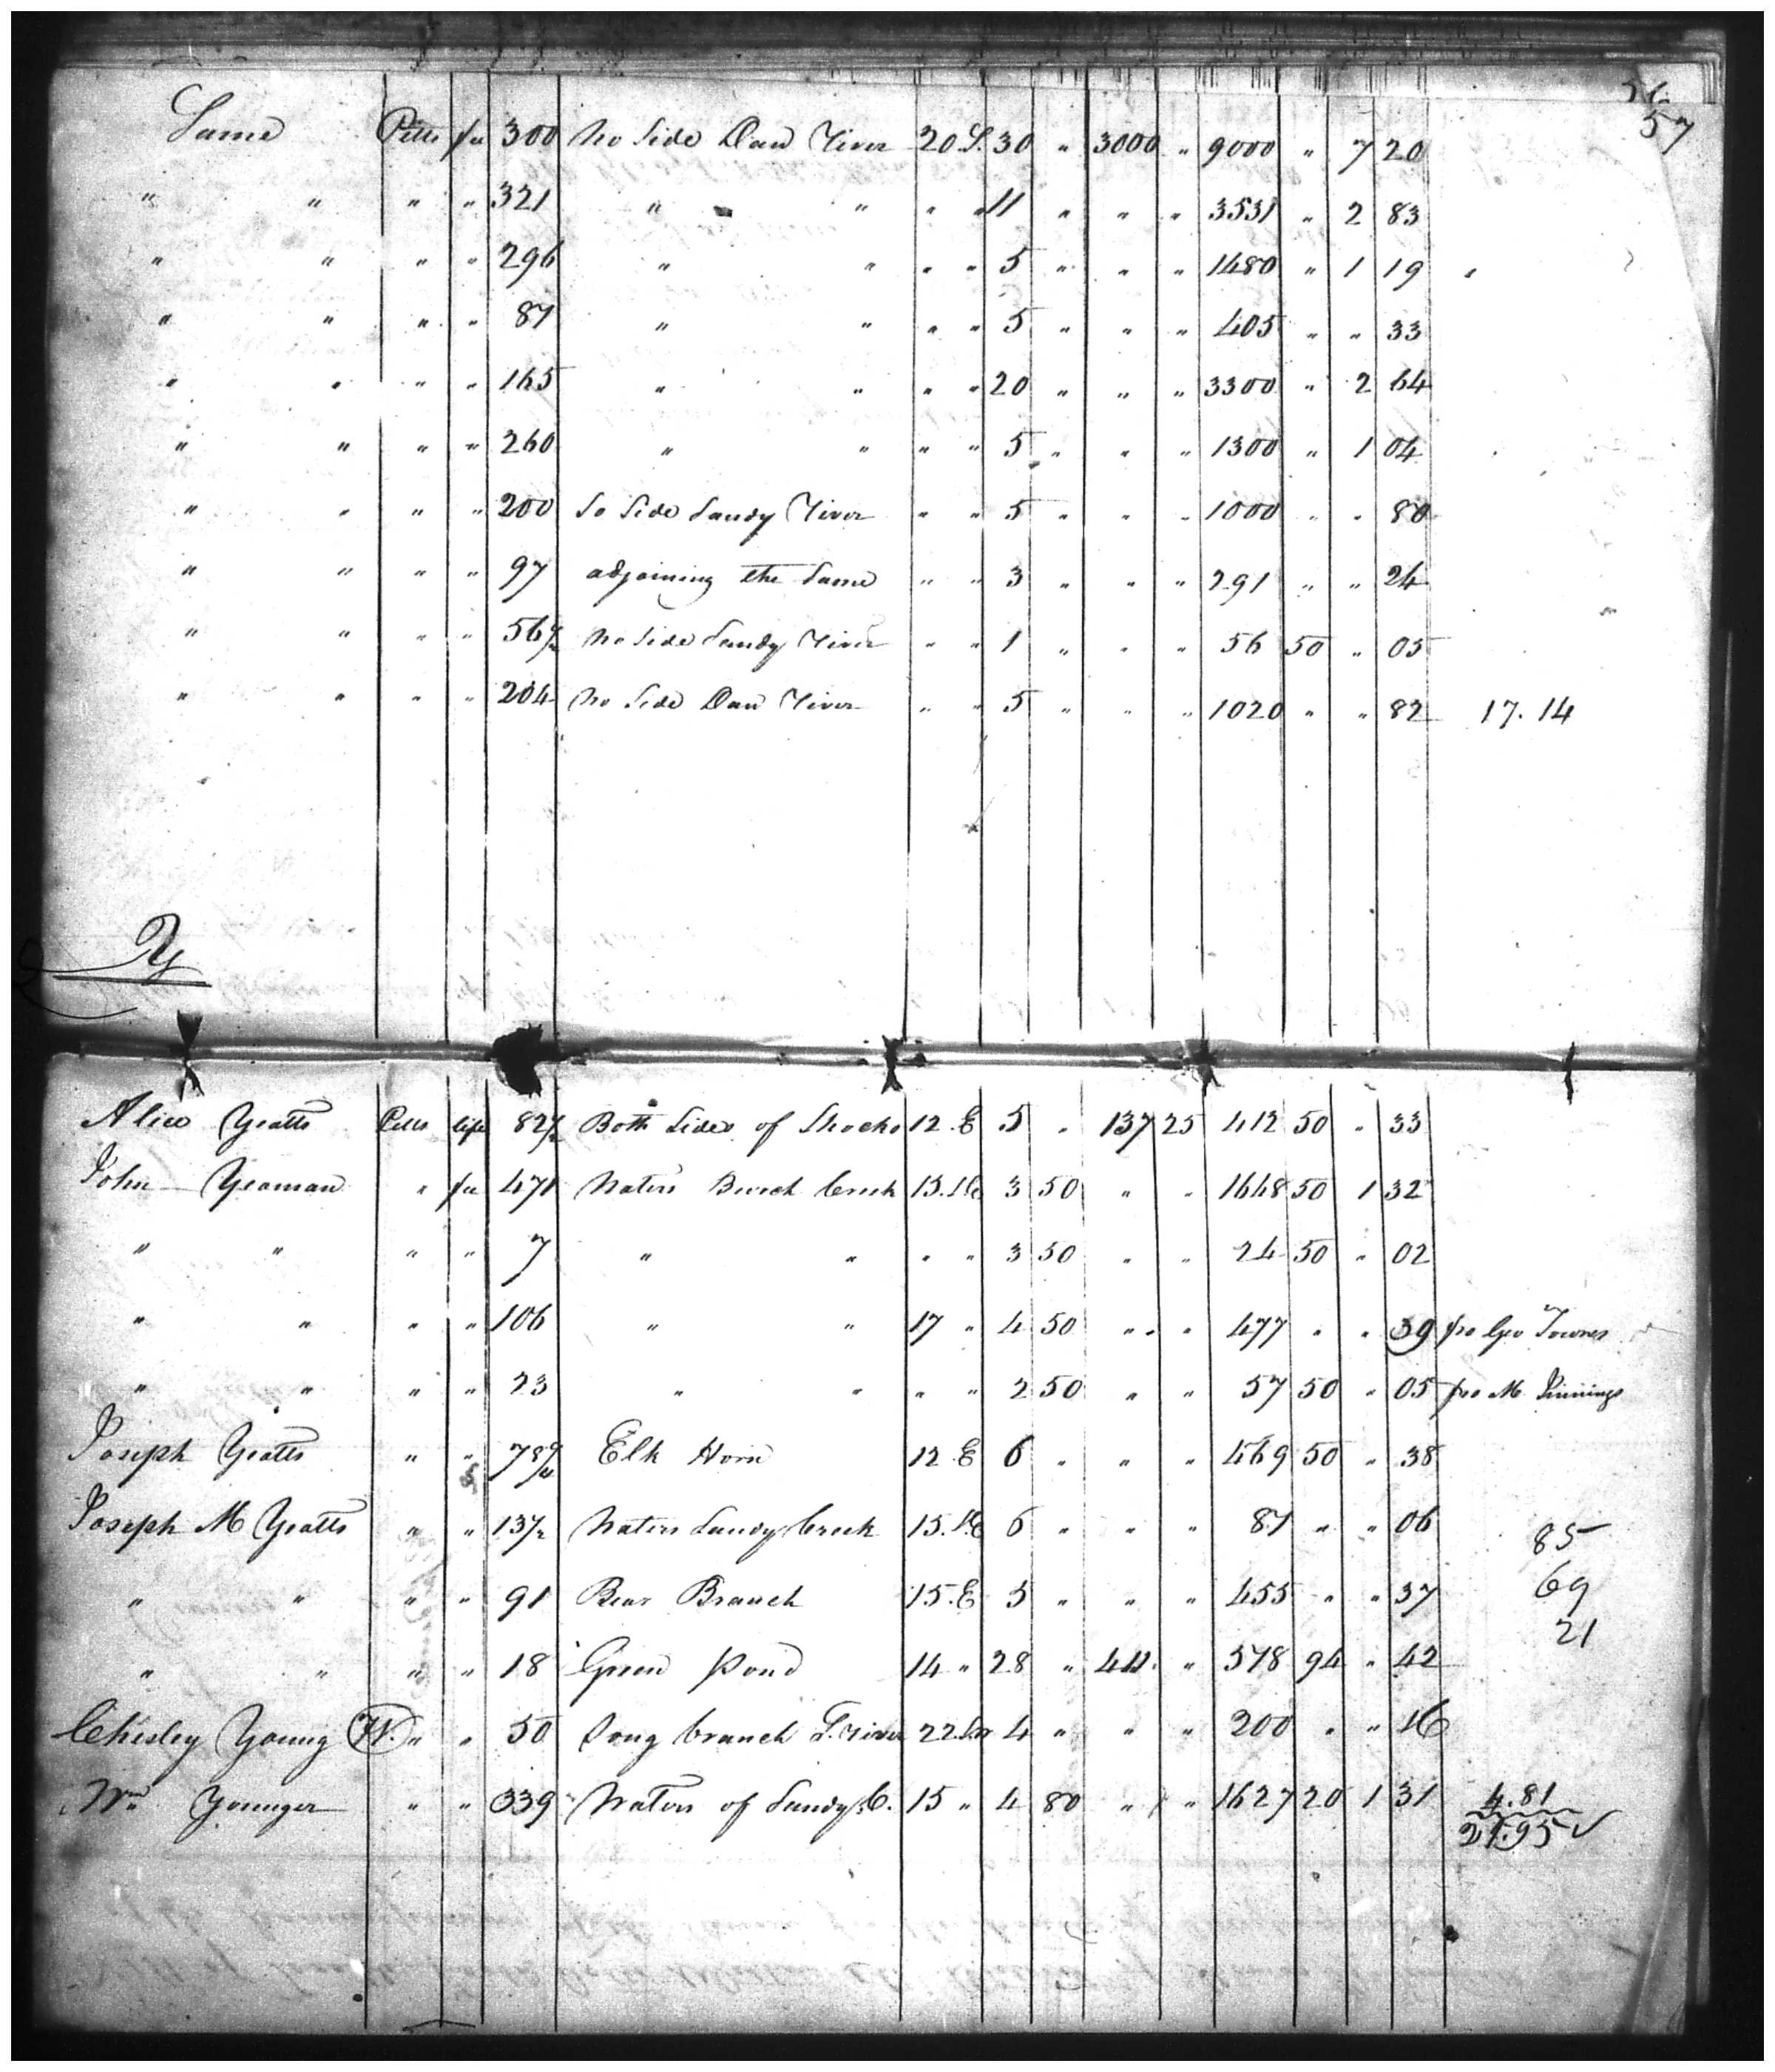 56
57
Same Pitts fee 300 No Side Dan River 20 S. 30 " 3000 " 9000 " 7 20
" " " " 321 " " " " 11 " " " 3531 " 2 83
" " " " 296 " " " " 5 " " " 1480 " 1 19
" " " " 81 " " " " 5 " " " 405 " " 33
" " " " 165 " " " " 20 " " " 3300 " 2 64
" " " " 260 " " " " 5 " " " 1300 " 1 04
" " " " 200 So Side Sandy River " " 5 " " " 1000 " " 80
" " " " 97 adjoining the Same " " 3 " " " 291 " " 24
" " " " 56½ No Side Sandy River " " 1 " " " 56 50 " 05
" " " " 204 No Side Dan River " " 5 " " " 1020 " " 82 17.14
Y
Alice Yeatts Pitts life 82½ Both Sides of Shocko 12 E 5 " 137 25 412 50 " 33
John Yeaman " fee 471 Waters Burch Creek 15. 3 50 " " 1648 50 1 32
" " " " 7 " " " " 3 50 " " 24 50 " 02
" " " " 106 " " 17 " 4 50 " " 477 " " 39 fro Geo Townes
" " " " 23 " " " " 2 50 " " 57 50 " 05 fro M
Joseph Yeatts " " 78 Elk Horn 12 E 6 " " " 469 50 " 38
Joseph M Yeatts " " 13½ Waters Sandy Creek 15. 6 " " " 81 " " 06
85
" " " " 91 Bear Branch 15. E 5 " " " 455 " " 37
69
21
" " " " 18 Green Pond 14 " 28 " " 518 94 " 42
Chisley Young " " 50 Long branch S. River 22 4 " " " 200 " " 16
Wm Younger " " 339 Waters of Sandy C. 15 " 4 80 " " 1627 20 1 31 4.81
21.95